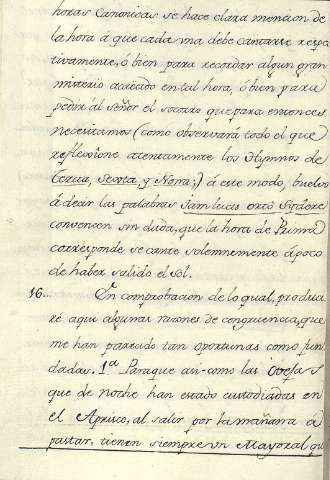 horas Canonicas se hace clara mencion de
la hora á que cada una debe cantarse respec
tivamente, ó bien para recordar algun gran
misterio acaecido en tal hora, ó bien para
pedir al Señor el socorro que para entonces
necesitamos (como observará todo el que
reflexione atentamente los Hymnos de
Tercia, Sexta, y Nona;) á este modo, buelvo
á decir las palabras Jam lucis orto Sidere
convencen sin duda, que la hora de Prima
corresponde se cante solemnemente á poco
de haber salido el sol.
16... En comprobacion de lo qual, produci
ré aqui algunas razones de congruencia, que
me han parecido tan oportunas como fun
dadas. 1ª Para que asi como las Ovejas
que de noche han estado custodiadas en
el Aprisco, al salir por la mañana á
pastar, tienen siempre un Mayoral qu